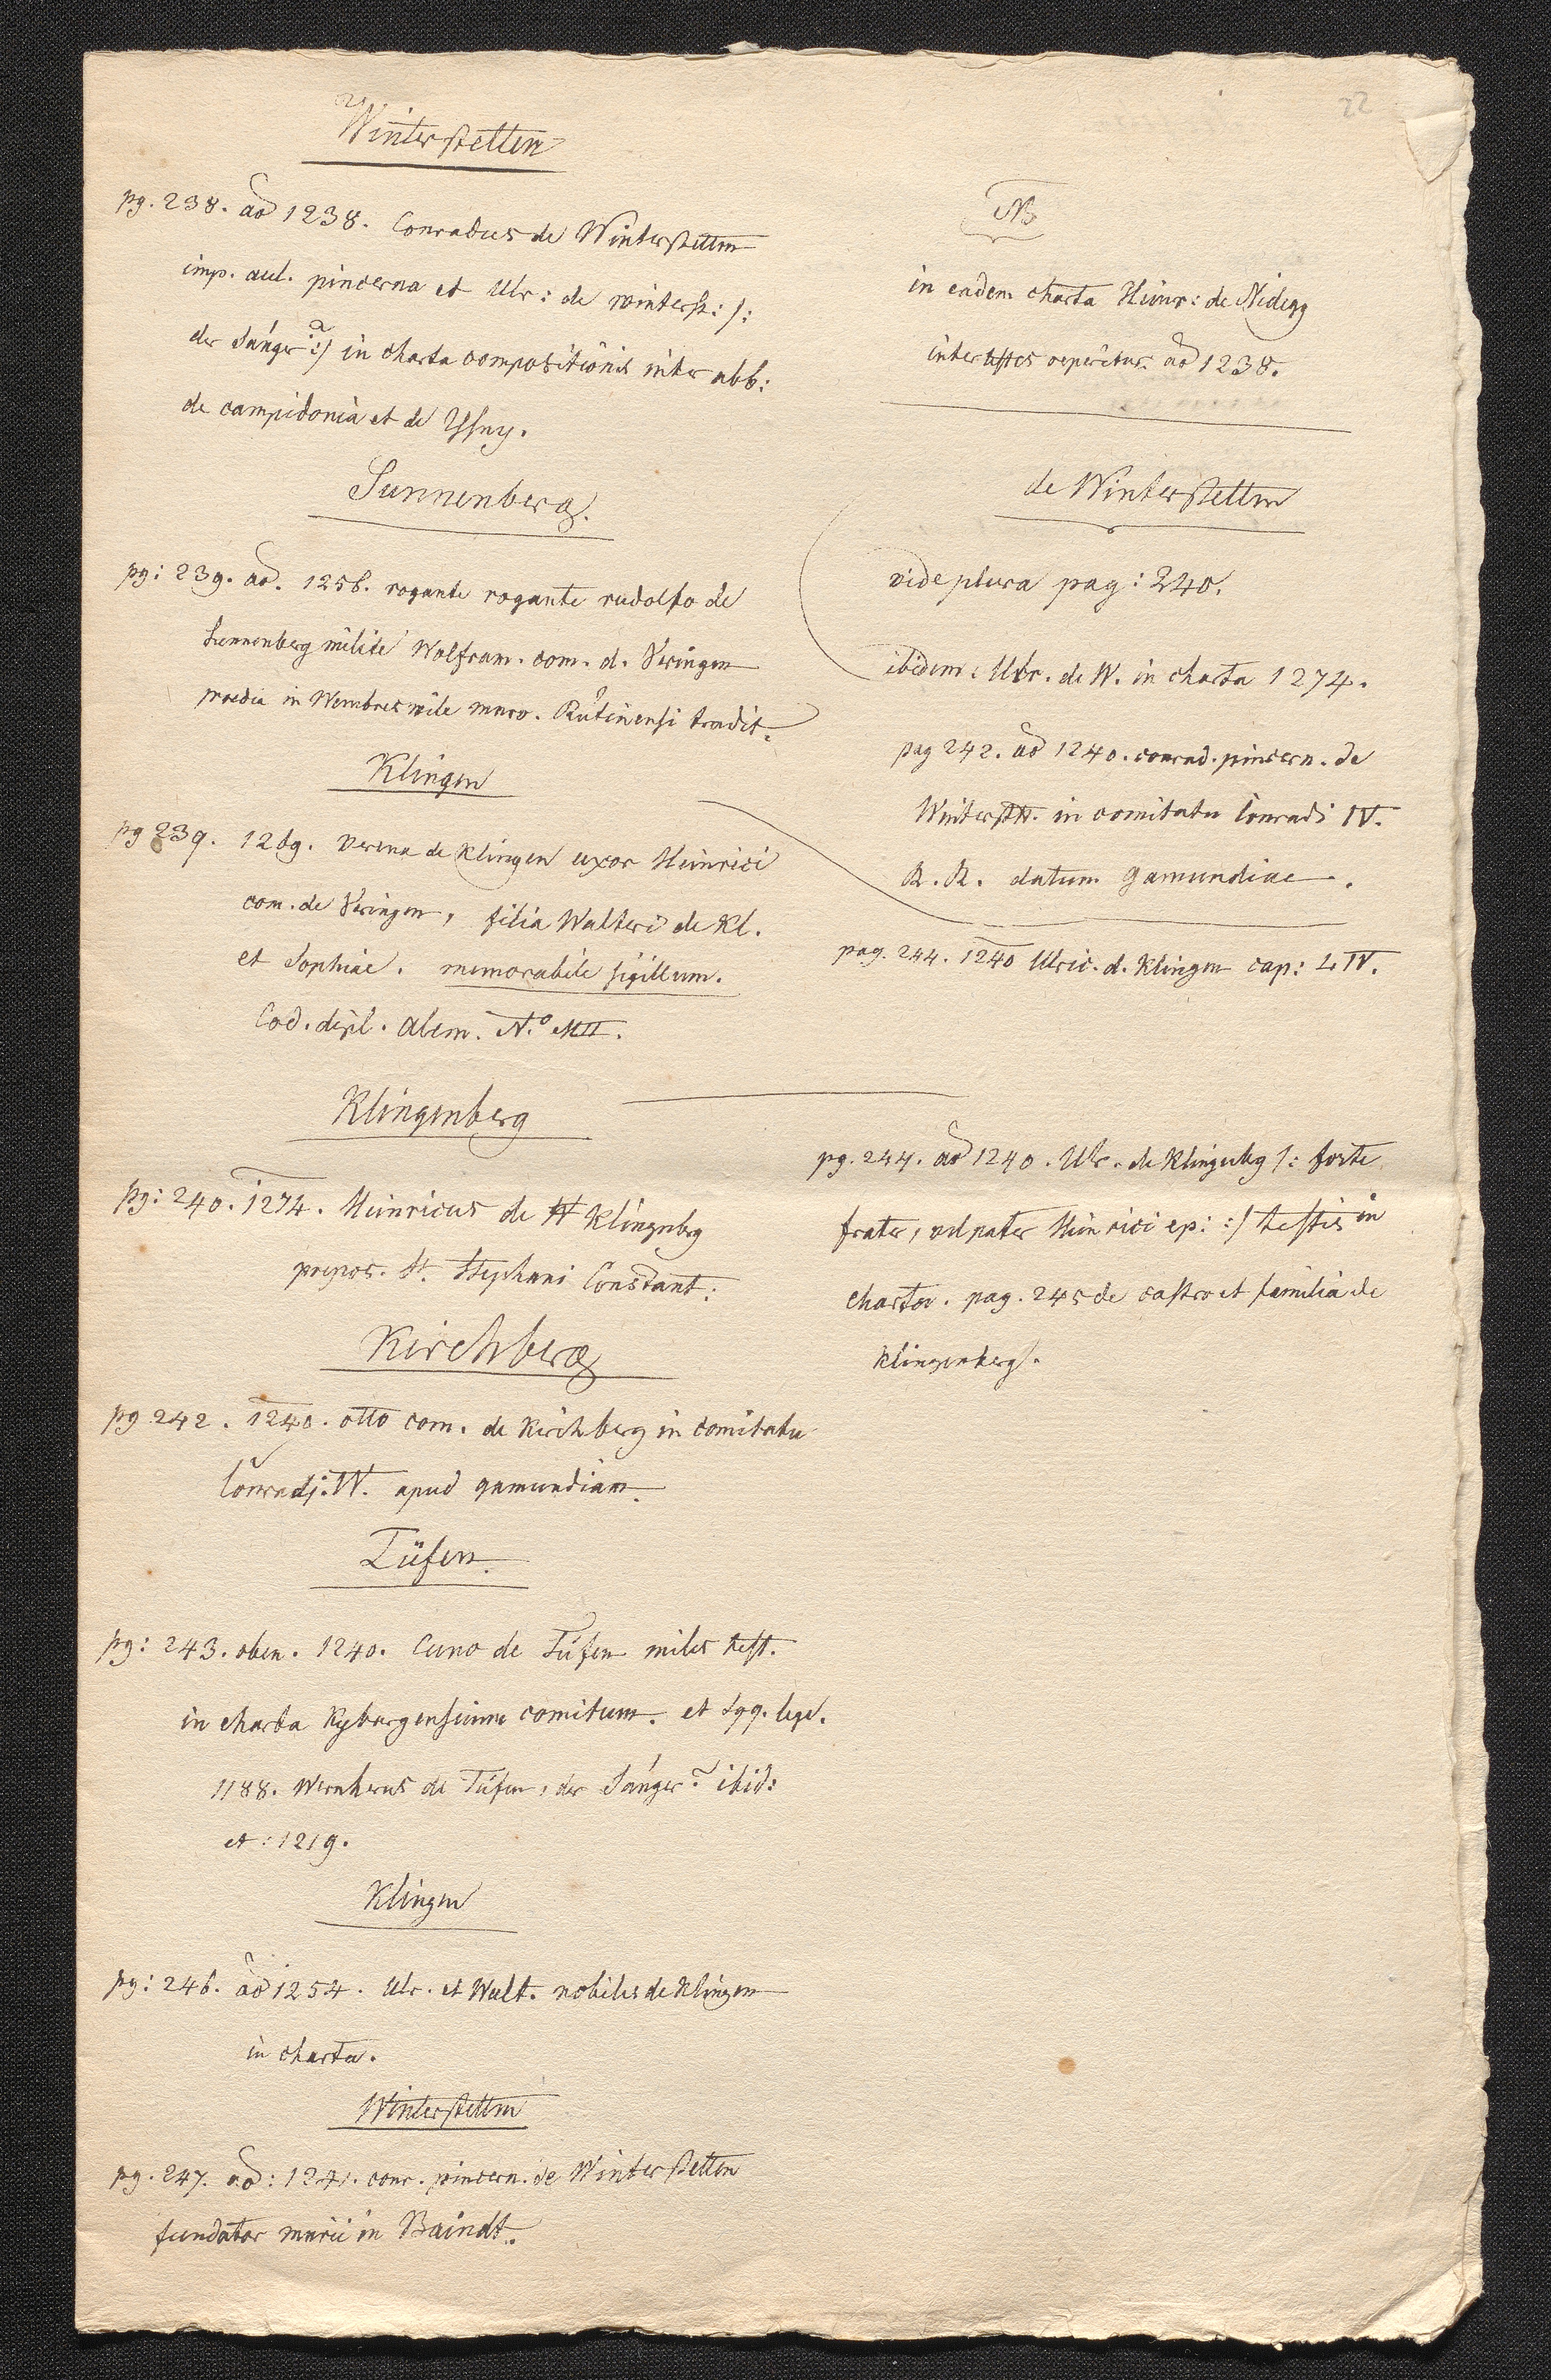 22
Winterstetten
pg. 238. aõ 1238. Conradus de Winterstetten
imp. aul. pincerna et Ulr: de winterst: /:
der Sänger?:/ in charta compositionis inter abb:
de campidonia et de Ysny.
Sunnenberg.
pg: 239. aõ. 1256. rogante rogante rudolfo de
Sunnenberg milite Wolfram. com. d. Veringen
praedia in Wembreswile mnro. Rutinensi tradit.
Klingen
pg 239. 1269. Verena de Klingen uxor Heinrici
com. de Veringen, filia Walteri de Kl.
et Sophiae. memorabile sigillum.
Cod. dipl. Alem. N.º MII.
Klingenberg
pg: 240. 1274. Heinricus de Klingenbrg
prepos. St. Stephani Constant:
Kirchberg
pg 242. 1240. otto com. de Kirchberg in comitatu
Conradj. IV. apud gamundiam.
Tüfen.
pg: 243. oben. 1240. Cuno de Tüfen miles test.
in charta Kyburgensium comitum. et sqq. lege.
1188. Wernherus de Tüfen, der Sänger? ibid:
et: 1219.
Klingen
pg: 246. aõ 1254. Ulr. et Walt. nobiles de Klingen
in charta.
Winterstetten
pg. 247. aõ: 1241. conr. pincern. de Winterstetten
fundator mnrii in Baindt.
NB
in eadem charta Heinr: de Nidegg
inter testes reperitur. aõ 1238.
de Winterstetten
vide plura pag: 240.
ibidem: Ulr. de W. in charta 1274.
pag 242. aõ 1240. conrad. pincern. de
Winterstt. in comitatu Conradi IV.
R. R. datum Gamundiae.
pag. 244. 1240 Ulric. d. Klingen cap: LIV.
pg. 244. aõ 1240. Ulr. de Klingenbg /: forte
frater, vel pater Heinrici ep: :/ testis in
charta. pag. 245 de castro et familia de
Klingenberg.